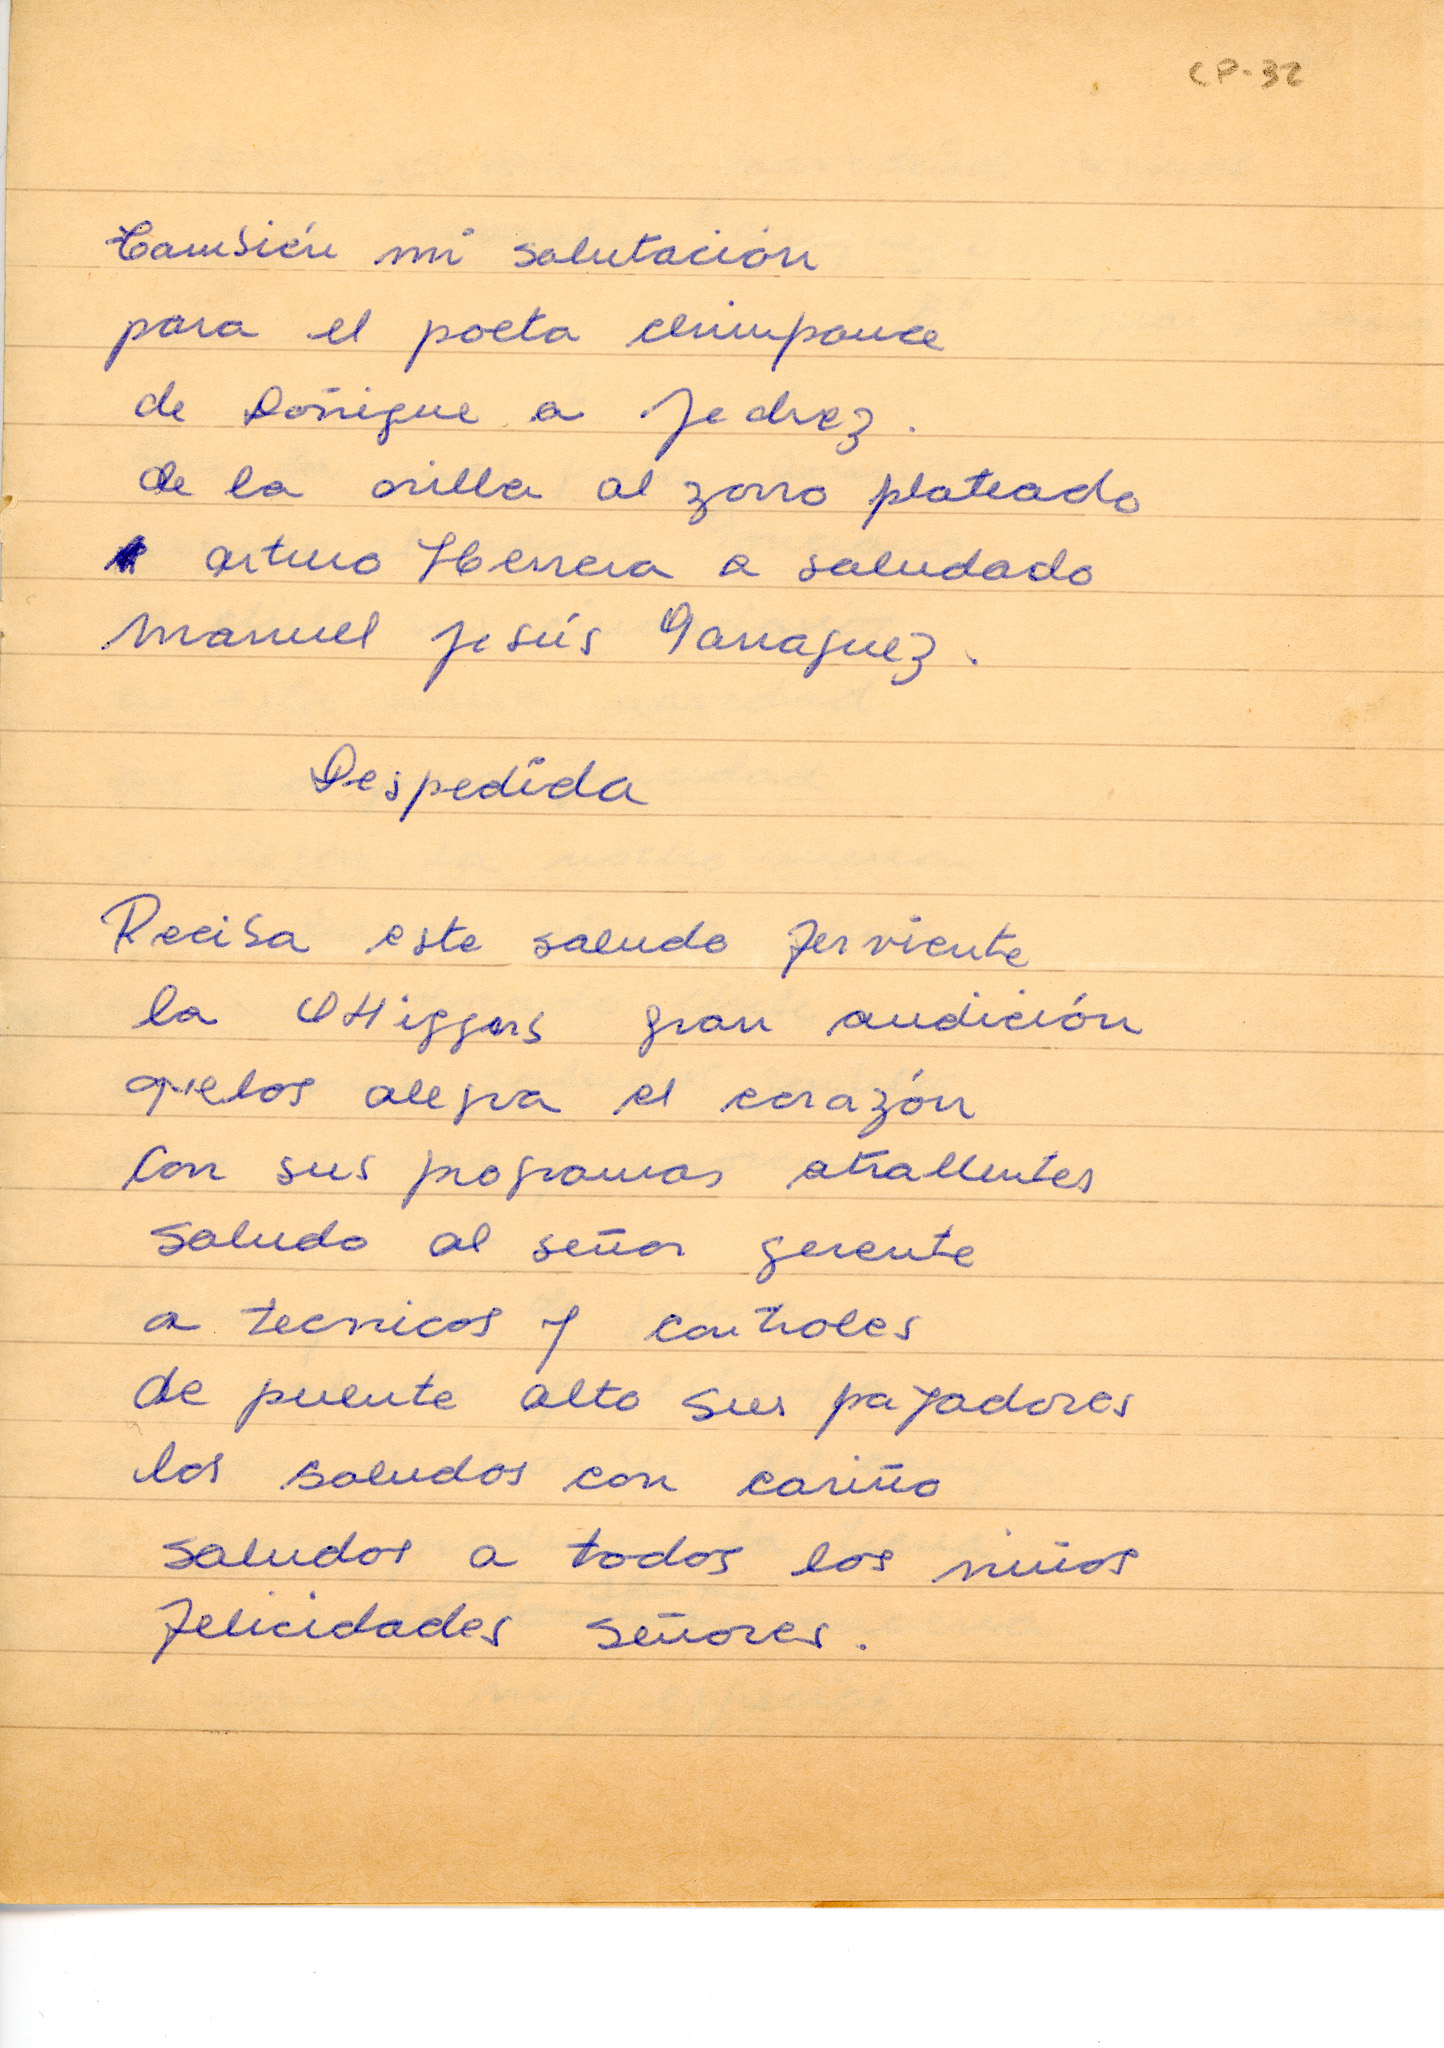 CP-32
También mi salutación
para el poeta chimpance
de Doñigue a Jedrez.
de la orilla al zorro plateado
arturo Herrera a saludado
manuel Jesús Garraguez.
Despedida
Reciba este saludo ferviente
la OHiggns gran audición
quelos alegra el corazón
con sus programas atrallentes
saludo al señor gerente
a tecnicos y controles
de puente alto sus payadores
los saludos con cariño
saludos a todos los niños
felicidades señores.